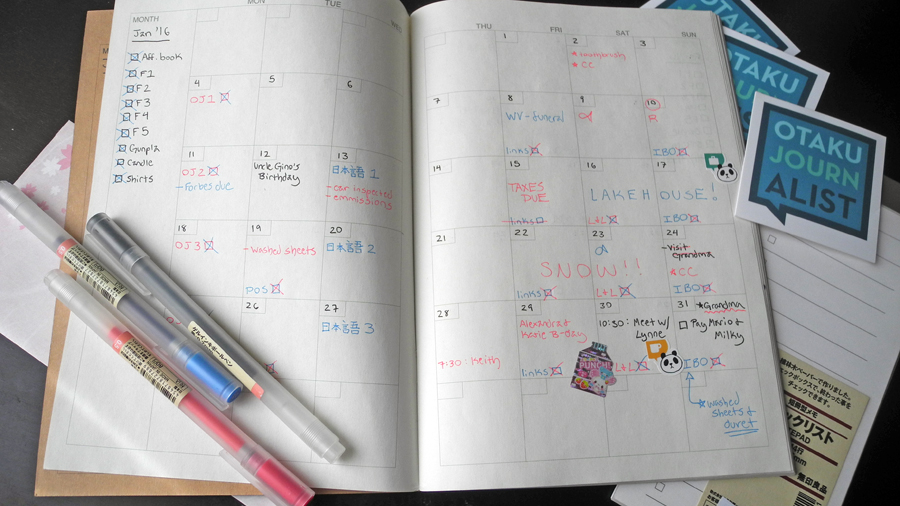 MONTH
Jan '16
Aff. book
F1
F2
F3
F4
F5
Gunpla
Candle
Shirts
MON
TUE
WED
4
OJ1
5
6
11
OJ2
-Forbes due
12
Uncle Gino's
Birthday
13
日本語 1
-car inspected
-emmissions
18
OJ3
19
-washed sheets
POS
20
日本語 2
26
27
日本語 3
THU
FRI
SUN
1
2
★CC
3
7
8
WV-funeral
links
9
10
R
IBO
14
15
TAXES
DUE
links
16
LAKEHOUSE!
L+L
17
IBO
21
22
SNOW!!
links
23
L+L
24
-Visit
Grandma
★CC
IBO
28
7:30: Keith
29
Alexandra &
Katie B-day
links
PUNCH!
30
10:30: Meet w/
Lynne
L+L
31
★Grandma
Pay Mario &
Milky
IBO
☆washed
sheets &
duvet
OTAKU
OTAKU
JOURN
OTAKU
JOURN
ALIST
チェックできます。
無印良品